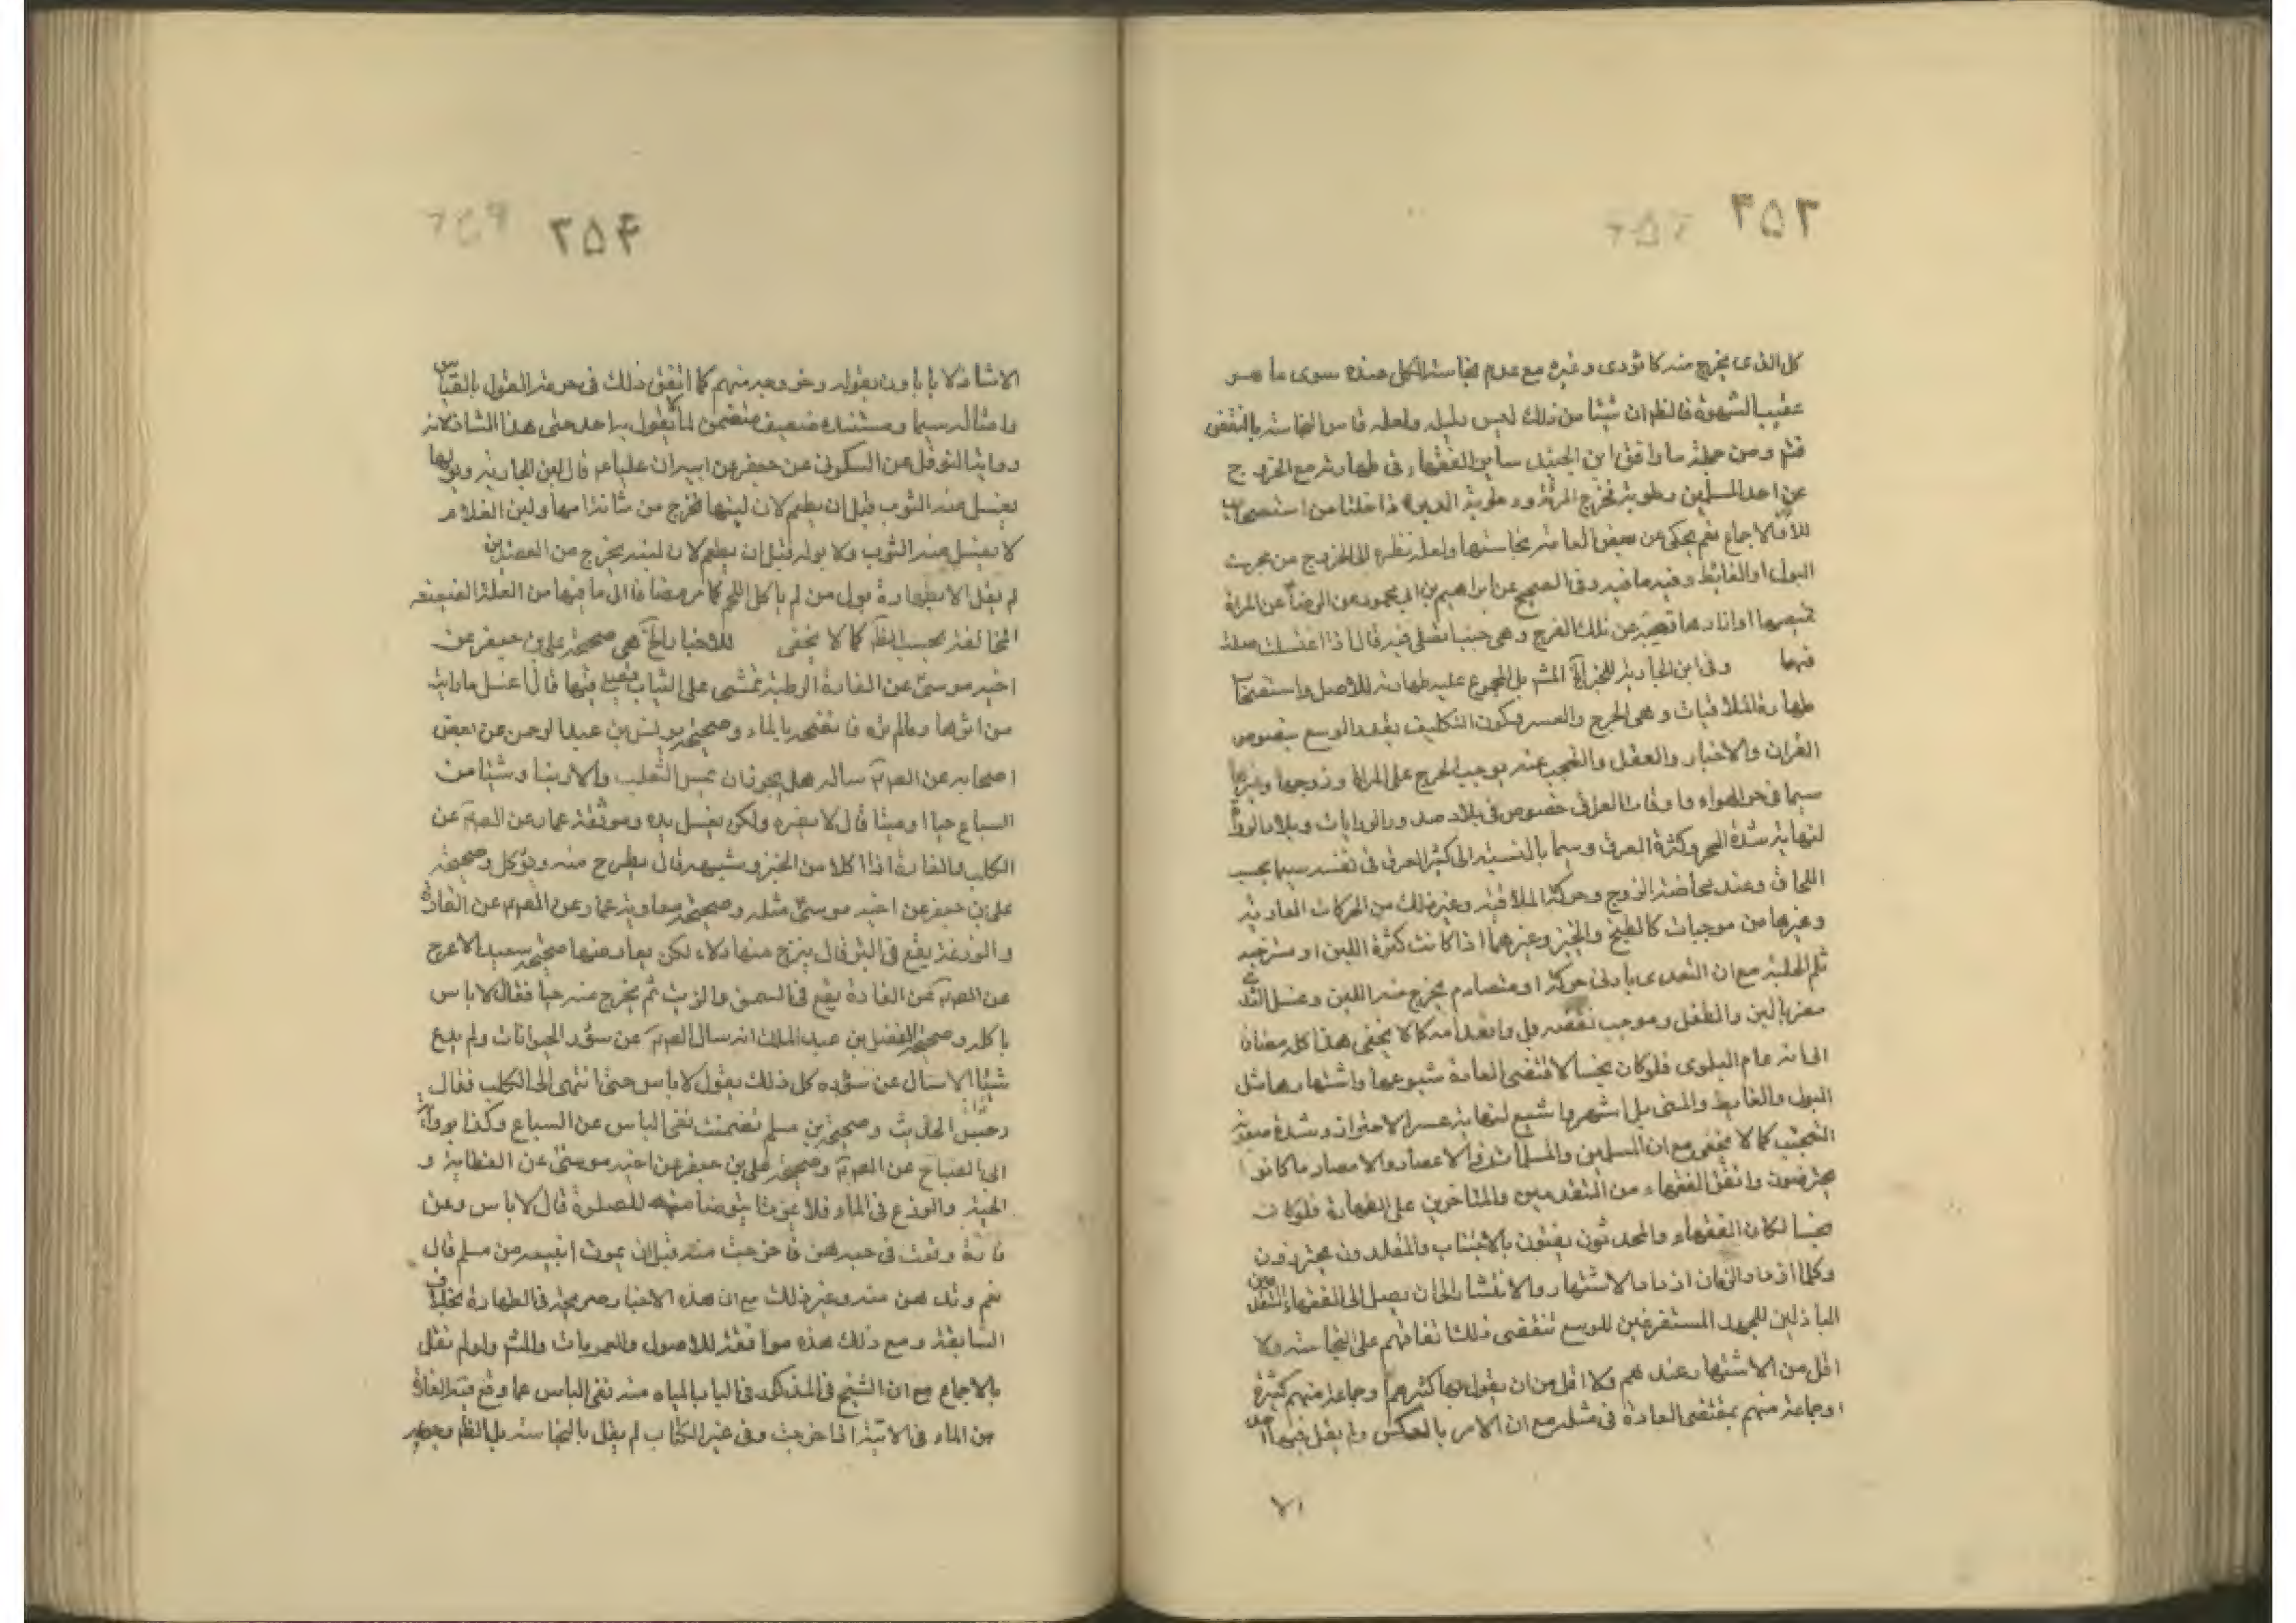 ۲۵۳
كل الذى يخرج منه كا تؤدى وغيره مع عدم نجاسة الكل عنده سوى ما هو
عقيب الشهوة فالظم ان شيئا من ذلك ليس دليله ولعله قاس النجاسة بالنقض
فتم ومن جملة ما وافق ابن الجنيد ساير الفقهاء فى طهارته مع الخروج
عن احد المسلمين رطوبة فخرج المرئة ورطوبة الدبر اذا خلتا من استصحاب
للأ الاجماع نعم يحكى عن بعض العامة نجاستها ولعله نظره الى الخروج من مجرى
البول او الغائط وفيه ما فيه وفى الصحيح عن ابراهيم بن ابى محمود عن الرضا عن المراة
قميصها او ازارها يصيبه من بلل الفرج وهى جنب اتصلى فيه قال اذا اغتسلت صلت
فيهما وفى ابن الجارية للخبر المشر بل المجمع عليه طهارته للاصل واستصحاب
طهارة الملاقيات وهى الحرج والعسر وكون التكليف بقدر الوسع بنصوص
القران والاخبار والعقل والتجنب عنه يوجب الحرج على المراة وزوجها وغيرها
سيما فى حر الهواء واوقات العرق خصوص فى بلاد
لنهاية شدة الحر وكثرة العرق وسيما بالنسبة الى كثير العرق فى نفسه سيما بحسب
اللحاف وعند مخاضة الزوج وحركة الملاقية وغير ذلك من الحركات العادية
وغيرها من موجبات كالطبخ والخبز وغيرهما اذا كانت كثيرة اللبن او مسترخية
ثلم الحلبة مع ان الثدى بادنى حركة او مصادم يخرج منه اللبن وغسل الثدى
مضر بالبن والطفل وموجب نقصه بل وانعدامه كما لا يخفى هذا كله مضافا
الى انه عام البلوى فلو كان نجسا لاقتضى العادة شيوعها واشتهارها مثل
البول والغايط والمنى بل اشهر واشيع لنهاية عسر الاحتراز وشدة صعوبة
التجنب كما لا يخفى مع ان المسلمين والمسلمات فى الاعصار والامصار ما كانوا
يحترضون واتفق الفقهاء من المتقدمين والمتاخرين على الطهارة فلو كان
نجسا لكان الفقهاء والمحدثون يفتون بالاجتناب والمقلدون يحترزون
وكلما ازداد الزمان ازداد الاشتهار والانتشار الى ان يصل الى الفقهاء المتقدمين
الباذلين للجهد المستفرغين للوسع فتقضى ذلك اتفاقهم على النجاسة ولا
اقل من الاشتهار عندهم ولا اقل من ان يقول بها اكثرهم او جماعة منهم كثيرة
او جماعة منهم بمقتضى العادة فى مثله مع ان الامر بالعكس ولم يقل فيها احد
۲۵۴
الا شاذ لا يابا ون بقوله وخروجه منهم كما اتفق ذلك فى حرمة القول بالقياس
وامثاله سيما ومستنده ضعيف متضمن لما لا يقول به احد حتى هذا الشاذ لانه
رواية النوفلى عن السكونى عن جعفر عن ابيه ان عليا ع قال لبن الجارية وبولها
يغسل منه الثوب قبل ان يطعم لان لبنها يخرج من مثانة امها ولبن الغلام
لا يغسل منه الثوب ولا بوله قبل ان يطعم لان لبنه يخرج من العضدين
لم يقل الا بطهارة بول من لم ياكل اللحم كما مر مضافا الى ما فيها من العلة الضعيفة
المخالفة بحسب الظ كما لا يخفى للاخبار الخ هى صحيحة على بن جعفر عن
اخيه موسى عن الفارة الرطبة تمشى على الثياب ايصلى فيها قال اغسل ما رايت
من اثرها ومالم تره فانضحه بالماء وصحيحة يونس بن عبد الرحمن عن بعض
اصحابه عن الصم ساله هل يجوز ان يمس الثعلب والارنب او شيئا من
السباع حيا او ميتا قال لا يضره ولكن يغسل يده وموثقة عمار عن الصم عن
الكلب والفارة اذا اكلا من الخبز وشبهه قال يطرح منه ويؤكل وصحيحة
على بن جعفر عن اخيه موسى مثله وصحيحة معاوية عمار عن الصم عن الفارة
والوزغة يقع فى البئر قال ينزح منها دلاء لكن يعارضها صحيحة سعيد الاعرج
عن الصم عن الفارة يقع فى السمن والزيت ثم يخرج منه حيا فقال لا باس
باكله وصحيحة الفضل بن عبد الملك انه سال الصم عن سؤر الحيوانات ولم يدع
شيئا الا سال عن سؤره كل ذلك يقول لا باس حتى انتهى الى الكلب فقال
رجس الحديث وصحيحة بن مسلم تضمنت نفى الباس عن السباع وكذا رواية
ابى الصباح عن الصم وصحيحة على بن جعفر عن اخيه موسى عن العظاية و
الحية والوزغ فى الماء فلا يموت ايتوضا منه للصلوة قال لا باس وعن
فارة وقعت فى حب دهن فاخرجت منه قبل ان يموت ابيعه من مسلم قال
نعم وتدهن منه وغير ذلك مع ان هذه الاخبار صريحة فى الطهارة بخلاف
السابقة ومع ذلك هذه موافقة للاصول والعمومات والمشر ولو لم نقل
بالاجماع مع ان الشيخ فى المذكر فى الباب المياه منه نفى الباس عما وقع فيه الفارة
من الماء فى الانية اذا خرجت وفى غير الكتاب لم يقل بالنجاسة بل الظم وجعله